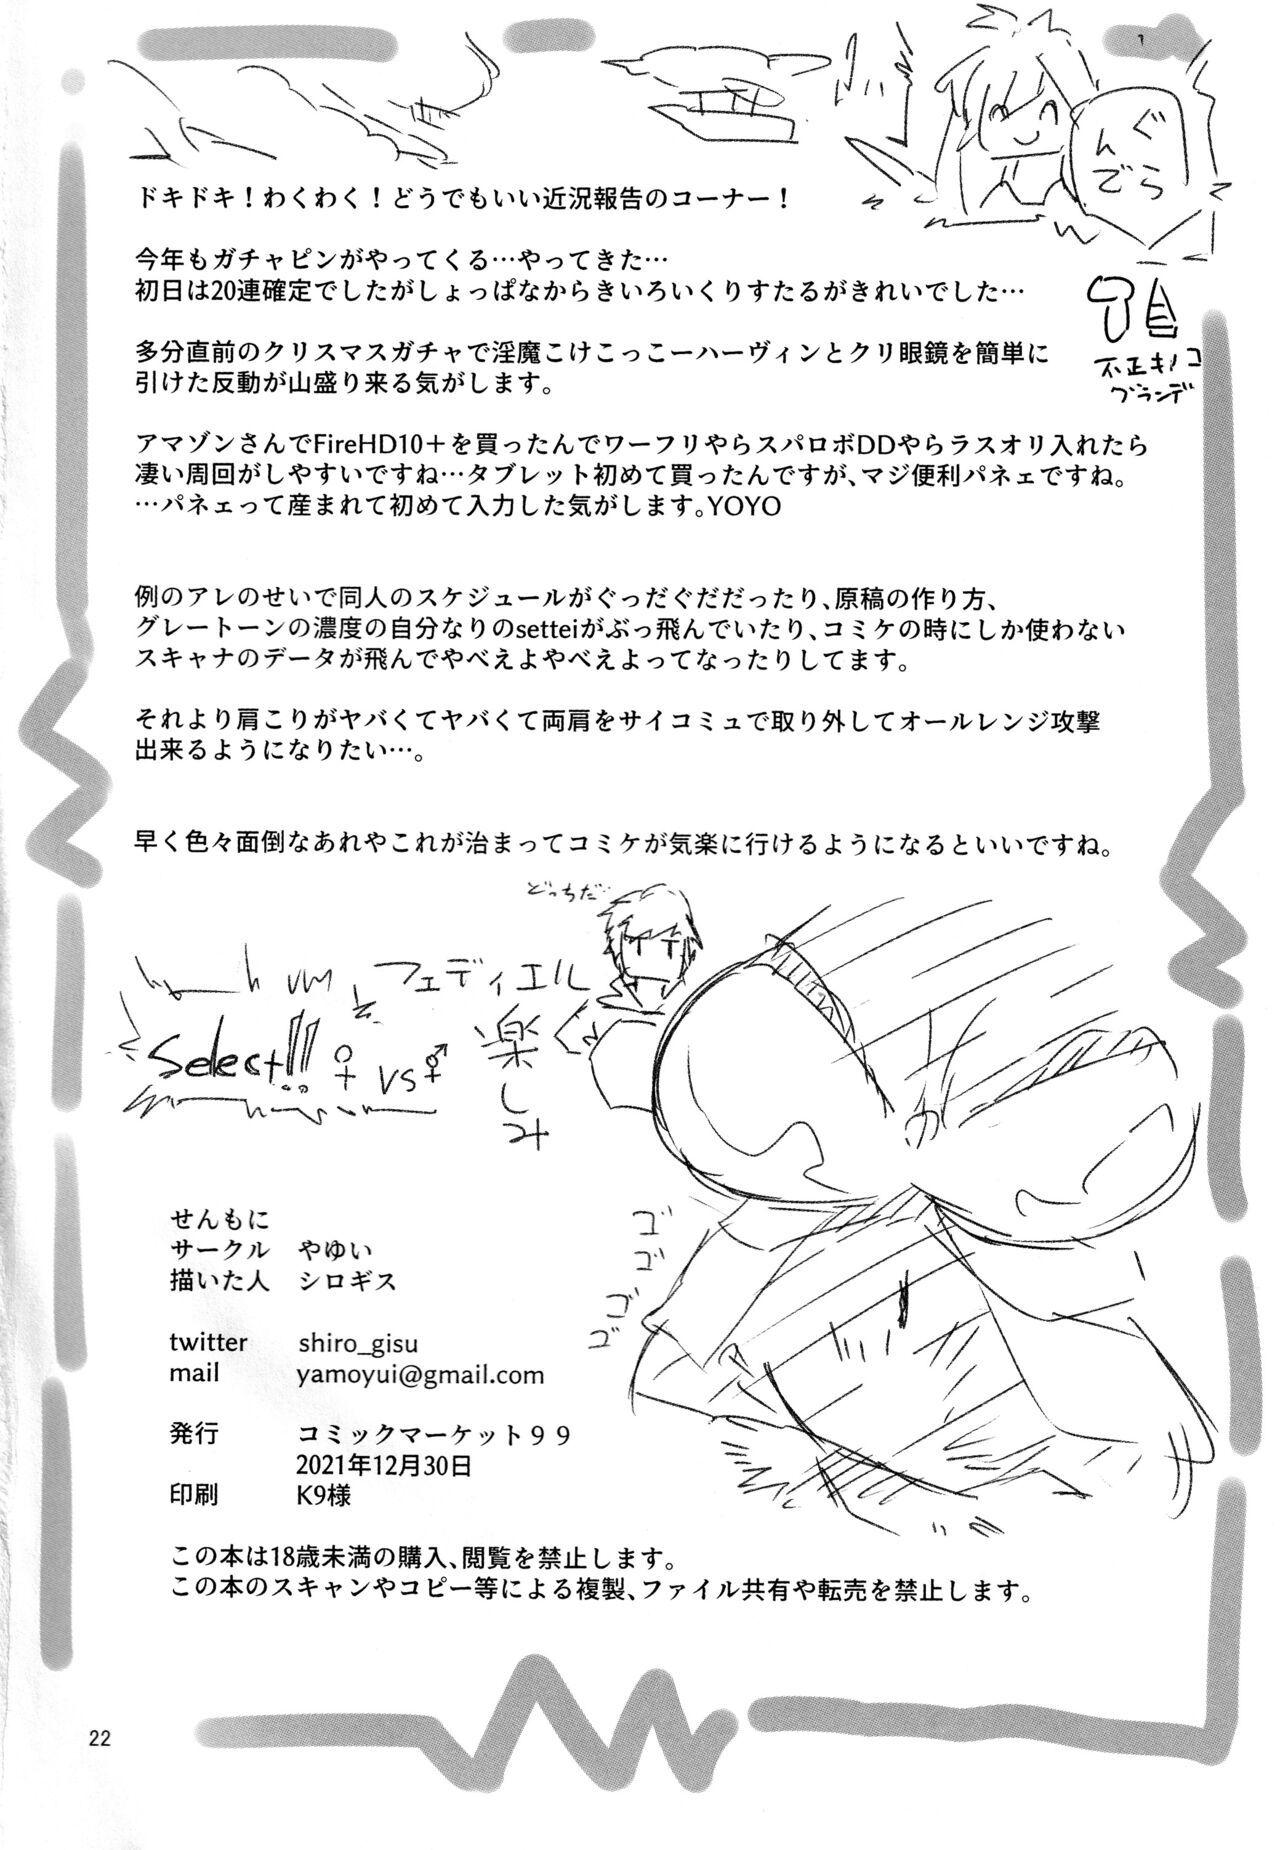 ぐらんで
ドキドキ！わくわく！どうでもいい近況報告のコーナー！
今年もガチャピンがやってくる…やってきた…
初日は20連確定でしたがしょっぱなからきいろいくりすたるがきれいでした…
不正キノコ
グランデ
多分直前のクリスマスガチャで淫魔こけこっこーハーヴィンとクリ眼鏡を簡単に
引けた反動が山盛り来る気がします。
アマゾンさんでFireHD10＋を買ったんでワーフリやらスパロボDDやらラスオリ入れたら
凄い周回がしやすいですね…タブレット初めて買ったんですが、マジ便利パネェですね。
…パネェって産まれて初めて入力した気がします。YOYO
例のアレのせいで同人のスケジュールがぐっだぐだだったり、原稿の作り方、
グレートーンの濃度の自分なりのsetteiがぶっ飛んでいたり、コミケの時にしか使わない
スキャナのデータが飛んでやべえよやべえよってなったりしてます。
それより肩こりがヤバくてヤバくて両肩をサイコミュで取り外してオールレンジ攻撃
出来るようになりたい…。
早く色々面倒なあれやこれが治まってコミケが気楽に行けるようになるといいですね。
どっちだ…
フェディエル
楽しみ
Select!! ♀ vs ⚥
ゴゴゴゴ
せんもに
サークル　やゆい
描いた人　シロギス
twitter　shiro_gisu
mail　yamoyui@gmail.com
発行　コミックマーケット９９
2021年12月30日
印刷　K9様
この本は18歳未満の購入、閲覧を禁止します。
この本のスキャンやコピー等による複製、ファイル共有や転売を禁止します。
22